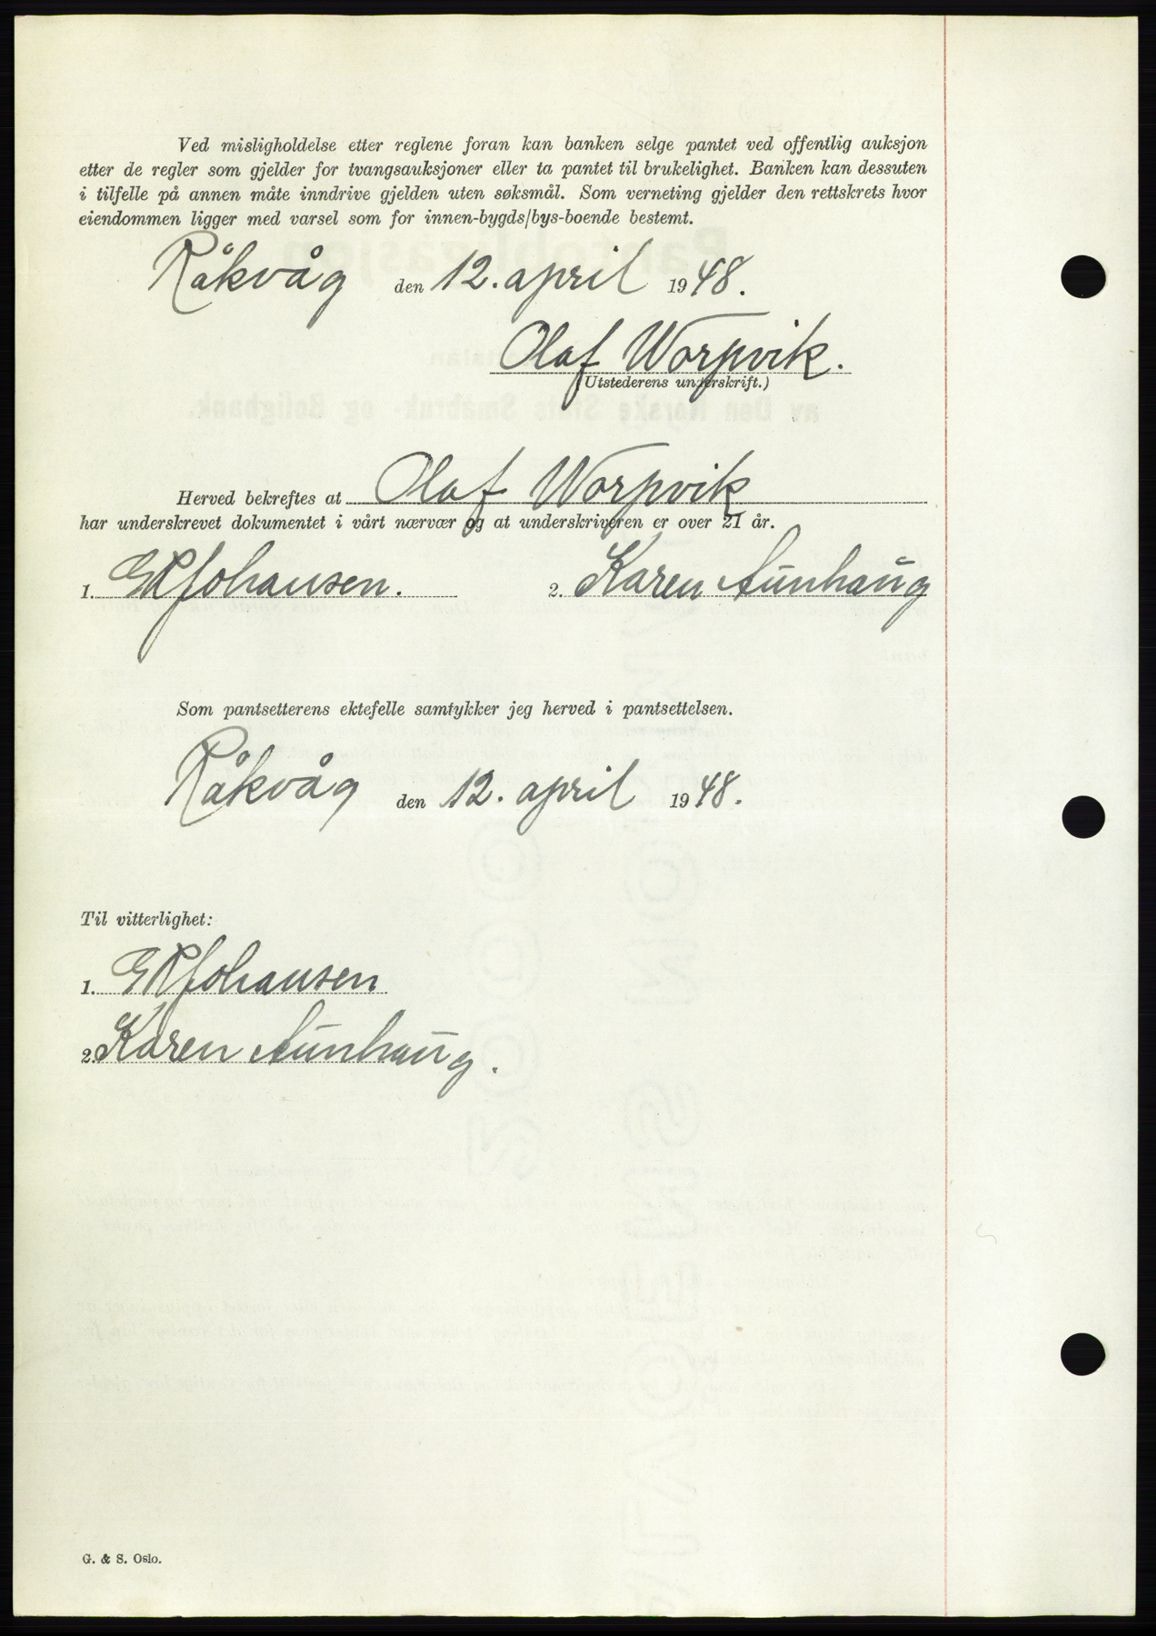 Ved misligholdelse etter reglene foran kan banken selge pantet ved offentlig auksjon
etter de regler som gjelder for tvangsauksjoner eller ta pantet til brukelighet. Banken kan dessuten
i tilfelle på annen måte inndrive gjelden uten søksmål. Som verneting gjelder den rettskrets hvor
eiendommen ligger med varsel som for innen-bygds/bys-boende bestemt.
Råkvåg den 12. april 1948.
Olaf Worpvik.
(Utstederens underskrift.)
Herved bekreftes at Olaf Worpvik
har underskrevet dokumentet i vårt nærvær og at underskriveren er over 21 år.
1. EKJohansen. 2. Karen Aunhaug
Som pantsetterens ektefelle samtykker jeg herved i pantsettelsen.
Råkvåg den 12. april 1948.
Til vitterlighet:
1. EKJohansen
2. Karen Aunhaug.
G. & S. Oslo.